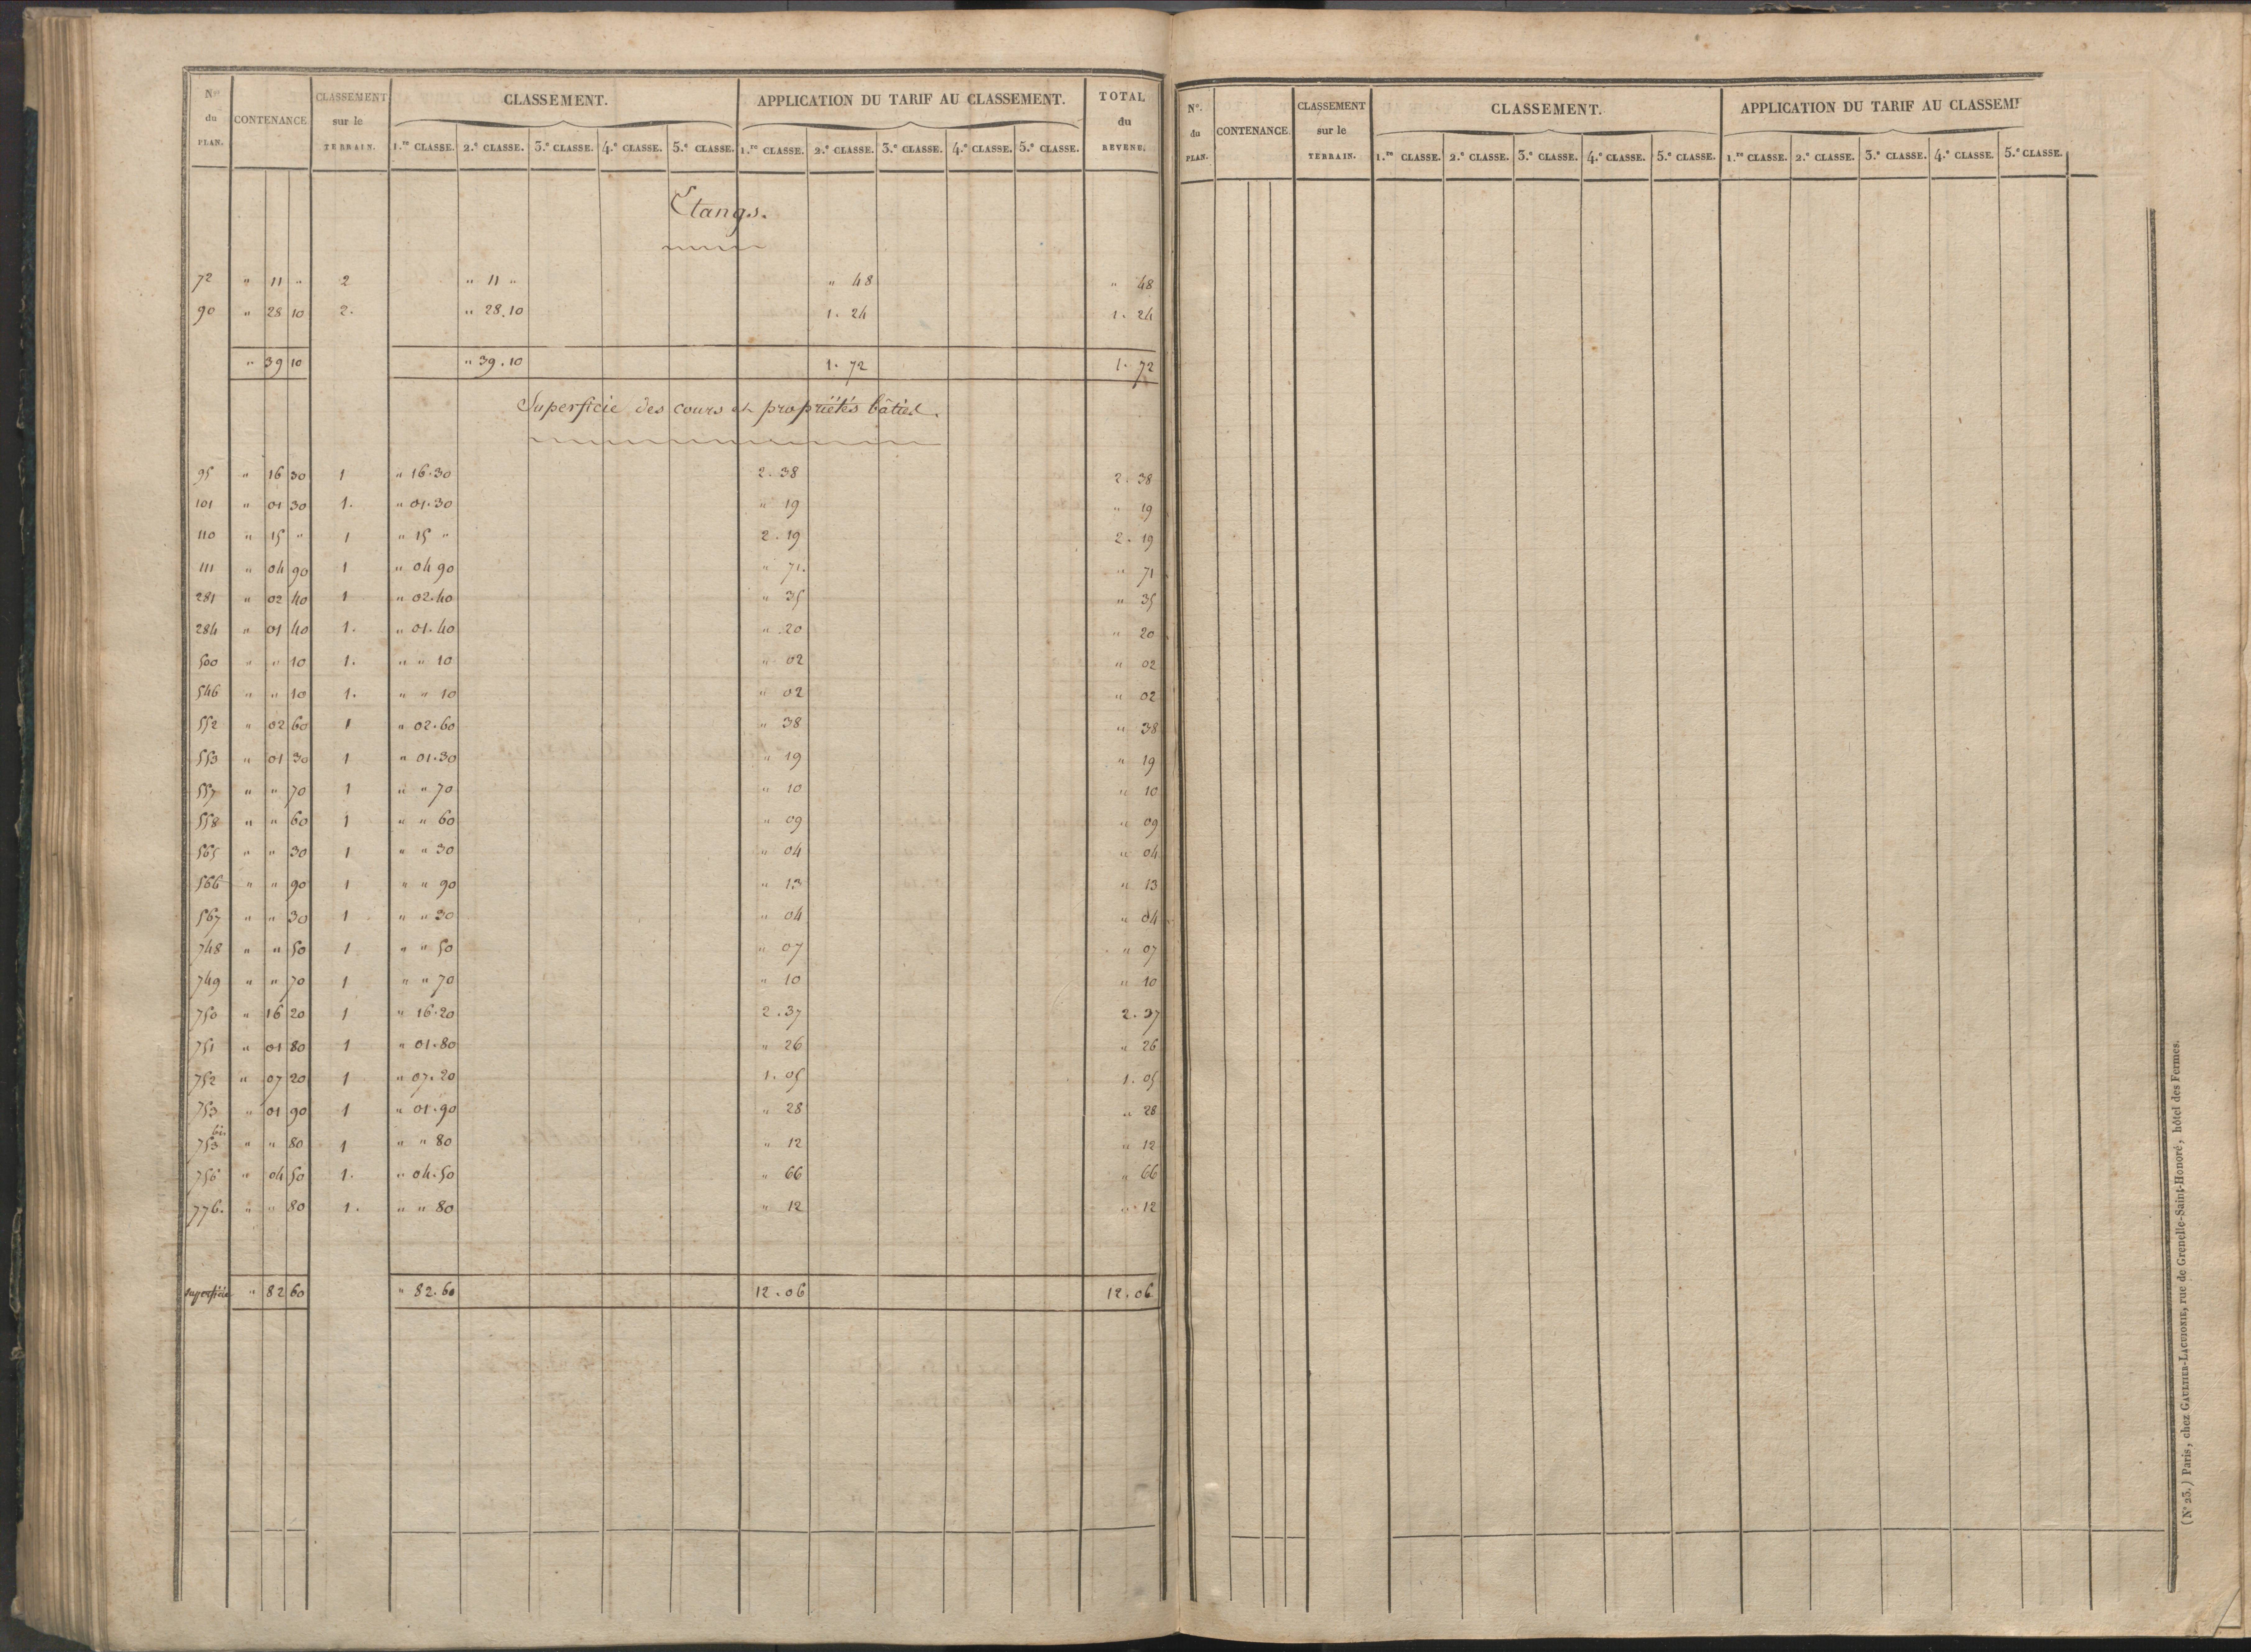 Nos du PLAN. CONTENANCE CLASSEMENT sur le TERRAIN. CLASSEMENT. APPLICATION DU TARIF AU CLASSEMENT. TOTAL du REVENU.
1.re CLASSE. 2.e CLASSE. 3.e CLASSE. 4.e CLASSE. 5.e CLASSE. 1.re CLASSE. 2.e CLASSE. 3.e CLASSE. 4.e CLASSE. 5.e CLASSE.
Etangs.
72 " 11 " 2 " 11 " " 48 " 48
90 " 28 10 2. " 28.10 1. 24 1. 24
" 39 10 " 39.10 1. 72 1. 72
Superficie des cours et propriétés bâties.
95 " 16 30 1 " 16.30 2. 38 2. 38
101 " 01 30 1. " 01.30 " 19 " 19
110 " 15 " 1 " 15 " 2. 19 2. 19
111 " 04 90 1 " 04 90 " 71. " 71
281 " 02 40 1 " 02.40 " 35 " 35
284 " 01 40 1. " 01.40 " 20 " 20
500 " " 10 1. " " 10 " 02 " 02
546 " " 10 1. " " 10 " 02 " 02
552 " 02 60 1 " 02.60 " 38 " 38
553 " 01 30 1 " 01.30 " 19 " 19
557 " " 70 1 " " 70 " 10 " 10
558 " " 60 1 " " 60 " 09 " 09
565 " " 30 1 " " 30 " 04 " 04
566 " " 90 1 " " 90 " 13 " 13
567 " " 30 1 " " 30 " 04 " 04
748 " " 50 1 " " 50 " 07 " 07
749 " " 70 1 " " 70 " 10 " 10
750 " 16 20 1 " 16.20 2. 37 2. 37
751 " 01 80 1 " 01.80 " 26 " 26
752 " 07 20 1 " 07.20 1. 05 1. 05
753 " 01 90 1 " 01.90 " 28 " 28
753 bis " " 80 1 " " 80 " 12 " 12
756 " 04 50 1. " 04.50 " 66 " 66
776. " " 80 1. " " 80 " 12 " 12
Superficie " 82 60 " 82.60 12.06 12.06
No. du PLAN. CONTENANCE. CLASSEMENT sur le TERRAIN. CLASSEMENT. APPLICATION DU TARIF AU CLASSEMT
1.re CLASSE. 2.e CLASSE. 3.e CLASSE. 4.e CLASSE. 5.e CLASSE. 1.re CLASSE. 2.e CLASSE. 3.e CLASSE. 4.e CLASSE. 5.e CLASSE.
(No 23.) Paris, chez GAULTIER-LAGUIONIE, rue de Grenelle-Saint-Honoré, hôtel des Fermes.